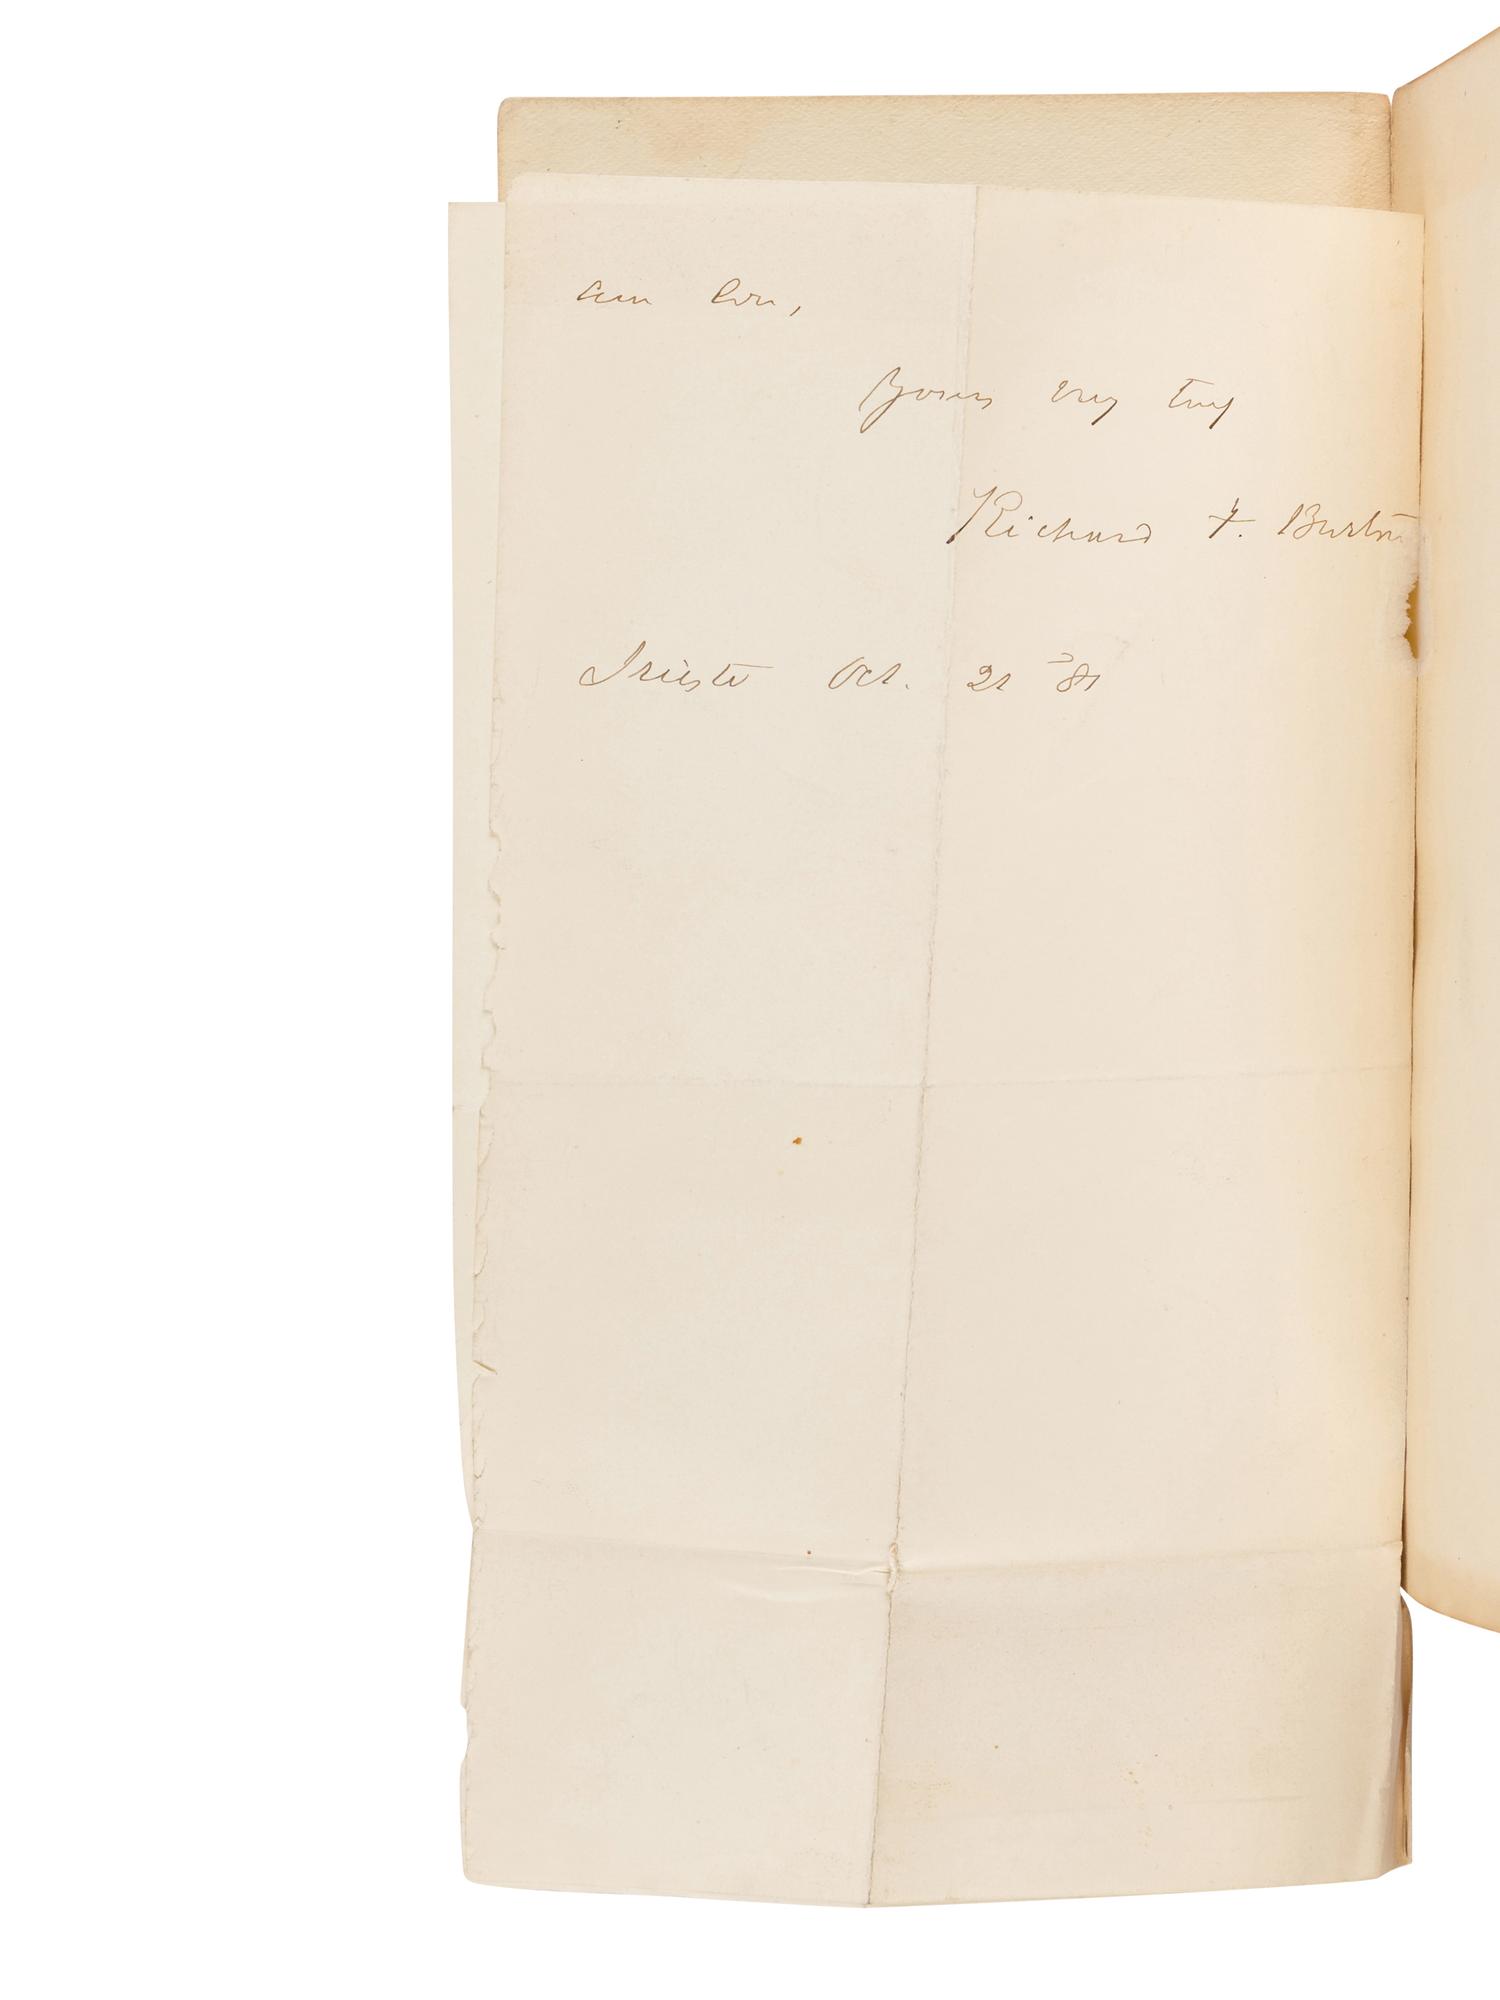 am ever,
Yours very truly
Richard F. Burton
Trieste Oct. 21 '81